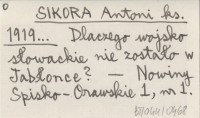 SIKORA Antoni ks.
1919... Dlaczego wojsko
słowackie nie zostało w
Jabłonce? — Nowiny
Spisko-Orawskie 1, nr 1.